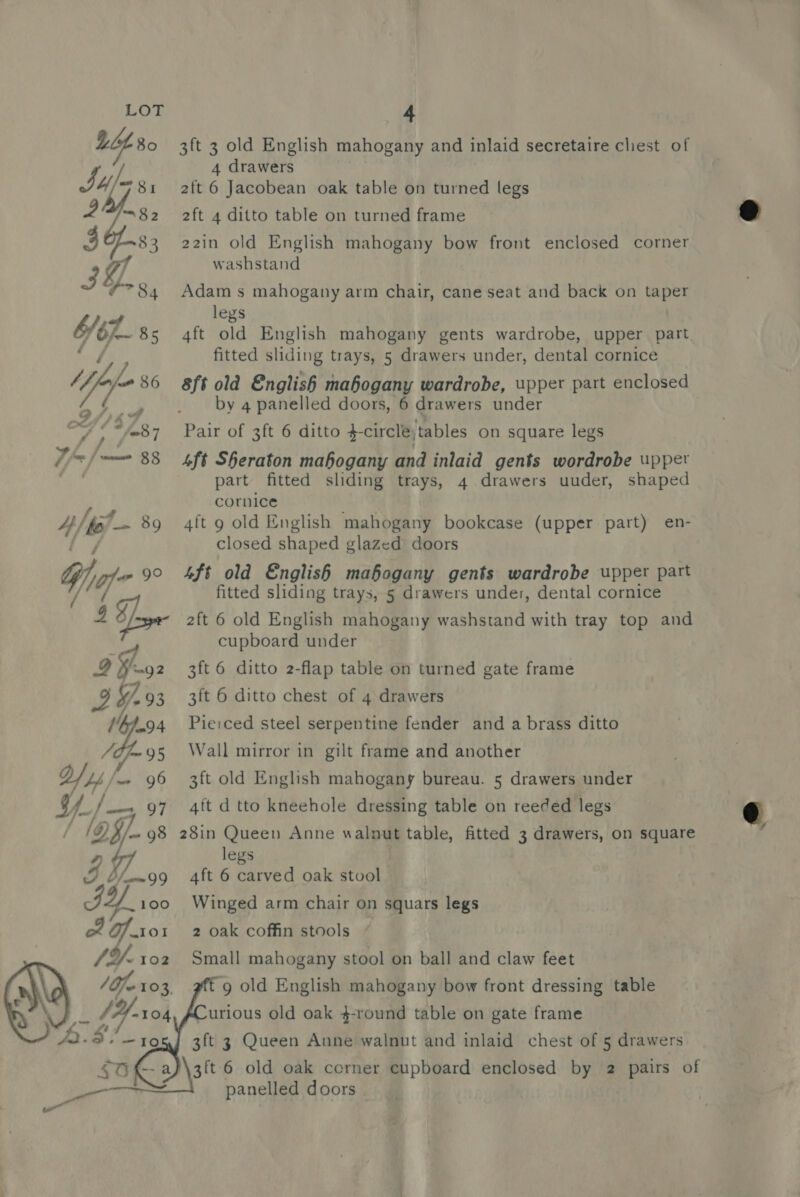 LOT 4
80 3ft 3 old English mahogany and inlaid secretaire chest of
4 drawers
81 2ft 6 Jacobean oak table on turned legs
82 2ft 4 ditto table on turned frame
83 22in old English mahogany bow front enclosed corner
washstand
84 Adam s mahogany arm chair, cane seat and back on taper
legs
85 4ft old English mahogany gents wardrobe, upper part
fitted sliding trays, 5 drawers under, dental cornice
86 8ft old English mahogany wardrobe, upper part enclosed
by 4 panelled doors, 6 drawers under
87 Pair of 3ft 6 ditto ½-circle tables on square legs
88 4ft Sheraton mahogany and inlaid gents wordrobe upper
part fitted sliding trays, 4 drawers uuder, shaped
cornice
89 4ft 9 old English mahogany bookcase (upper part) en-
closed shaped glazed doors
90 4ft old English mahogany gents wardrobe upper part
fitted sliding trays, 5 drawers under, dental cornice
2ft 6 old English mahogany washstand with tray top and
cupboard under
92 3ft 6 ditto 2-flap table on turned gate frame
93 3ft 6 ditto chest of 4 drawers
94 Pierced steel serpentine fender and a brass ditto
95 Wall mirror in gilt frame and another
96 3ft old English mahogany bureau. 5 drawers under
97 4ft d tto kneehole dressing table on reeded legs
98 28in Queen Anne walnut table, fitted 3 drawers, on square
legs
99 4ft 6 carved oak stool
100 Winged arm chair on squars legs
101 2 oak coffin stools
102 Small mahogany stool on ball and claw feet
103 9 old English mahogany bow front dressing table
104 Curious old oak ½-round table on gate frame
105 3ft 3 Queen Anne walnut and inlaid chest of 5 drawers
a 3ft 6 old oak corner cupboard enclosed by 2 pairs of
panelled doors